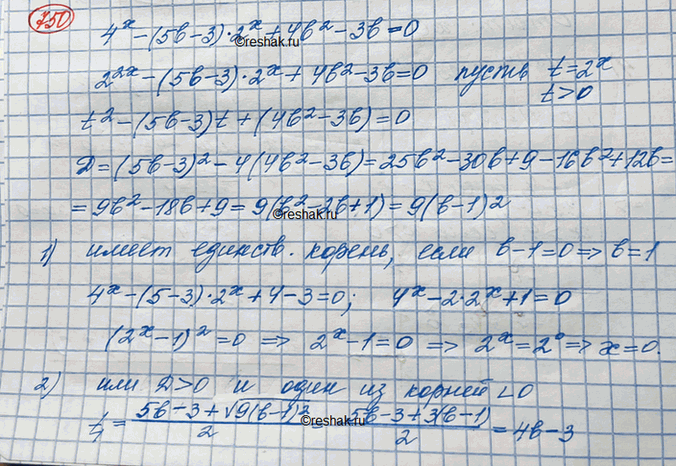 750
4^x-(5b-3)·2^x+4b²-3b=0
©reshak.ru
2^{2x}-(5b-3)·2^x+4b²-3b=0 пусть t=2^x
t>0
t²-(5b-3)t+(4b²-3b)=0
D=(5b-3)²-4(4b²-3b)=25b²-30b+9-16b²+12b=
=9b²-18b+9=9(b²-2b+1)=9(b-1)2
©reshak.ru
1) имеет единств. корень, если b-1=0⇒b=1
4^x-(5-3)·2^x+4-3=0; 4^x-2·2^x+1=0
(2^x-1)²=0 ⇒ 2^x-1=0 ⇒ 2^x=2^0⇒x=0.
2) или D>0 и один из корней <0
t₁ = \frac{5b-3+√9(b-1)2}{2} = \frac{5b-3+3(b-1)}{2} = 4b-3
©reshak.ru